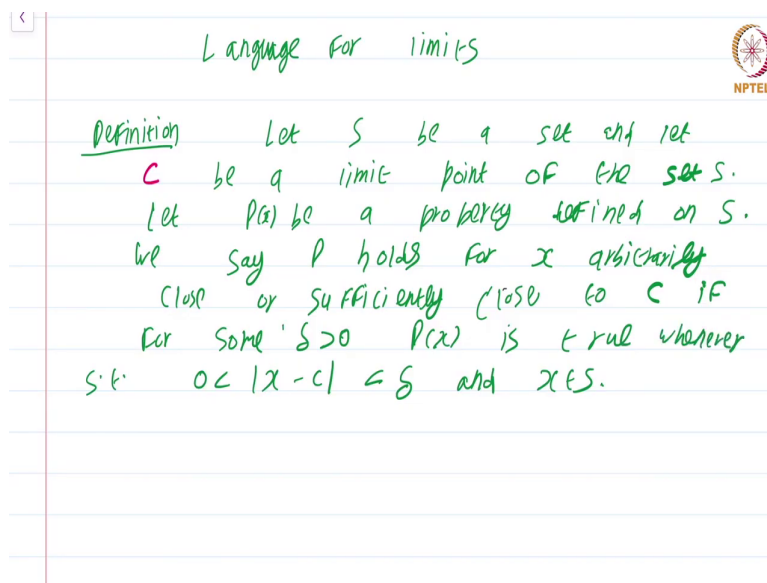 Language for limits
NPTEL
Definition Let S be a set and let
c be a limit point of the set S.
Let P(x) be a property defined on S.
We say P holds for x arbitrarily
close or sufficiently close to c if
for some δ>0 P(x) is true whenever
s.t. 0 < |x - c| < δ and x ∈ S.